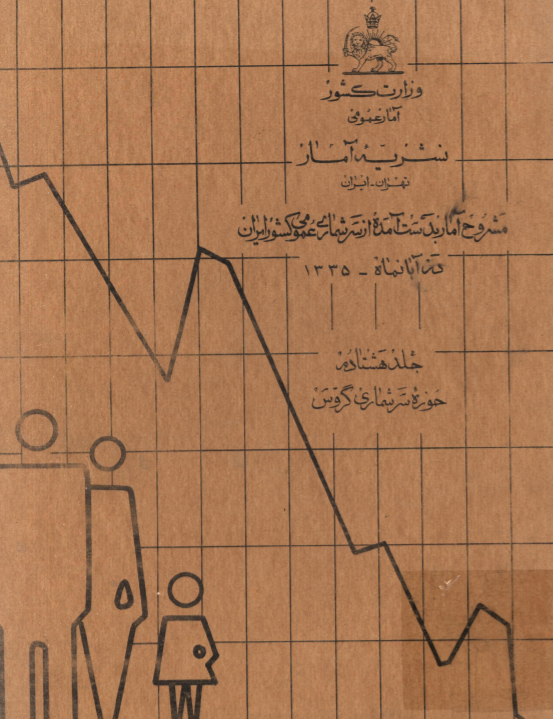 وزارت کشور
آمار عمومی
نشریه آمار
تهران - ایران
مشروح آمار بدست آمده از سرشماری عمومی کشور ایران
در آبانماه - ۱۳۳۵
جلد هشتادم
حوزه سرشماری گروس